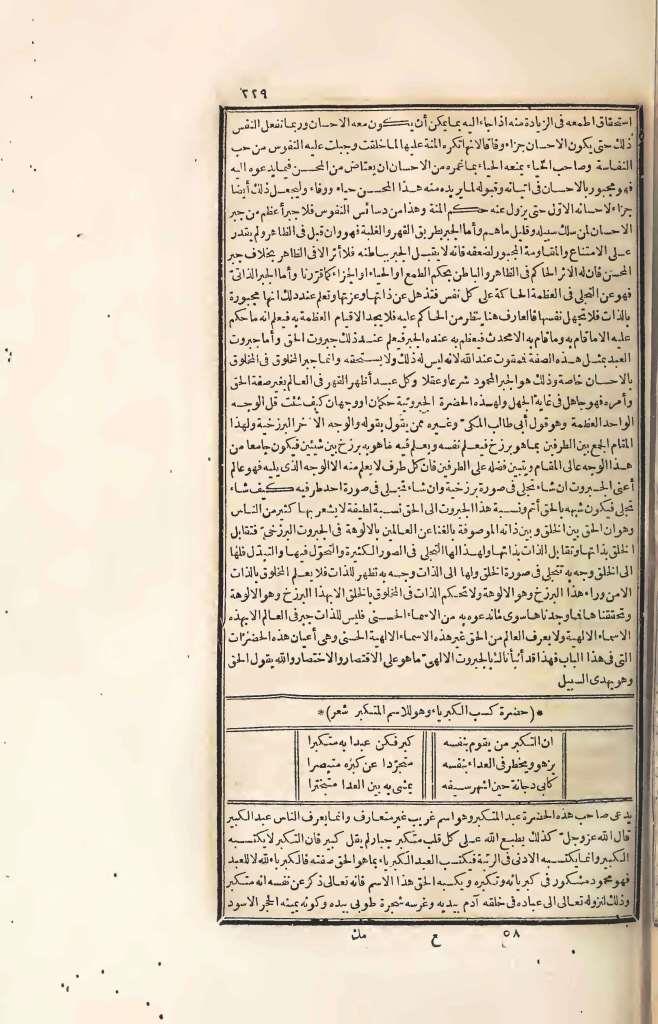 ٢٢٩
استحقاق اطمعه فى الزيادة منه اذا جاء اليه بما يمكن أن يتكون معه الاحسان وربما تفعل النفس
ذلك حتى يكون الاحسان جزاء وفاقا لانها تكره المنة عليها لما خلقت وجبلت عليه النفوس من حب
النفاسة وصاحب الحياء يمنعه الحياء بما غمره من الاحسان ان يعتاض من المحسن فيما يدعوه اليه
فهو مجبور بالاحسان فى اتيانه وقبوله لما يريده منه هذا المحسن حياء ووفاء وليجعل ذلك أيضا
جزاء لاحسانه الاول حتى يزول عنه حكم المنة وهذا من دسائس النفوس فلا جبر أعظم من جبر
الاحسان لمن سلك سبيله وقليل ما هم وأما الجبر بطريق القهر والغلبة فهو وان قبل فى الظاهر ولم يقدر
على الامتناع والمقاومة المجبور لضعفه فانه لا يقبل الجبر بباطنه فلا أثر الا فى الظاهر بخلاف جبر
المحسن فان له الاثر الحاكم فى الظاهر والباطن بحكم الطمع او الحياء او الجزاء كما قررنا وأما الجبر الذاتى
فهو عن التجلى فى العظمة الحاكمة على كل نفس فتذهل عن ذاتها وعزتها وتعلم عند ذلك انها مجبورة
بالذات فلا تجهل نفسها فالعارف هنا ينظر من الحاكم عليه فلا يجد الا قيام العظمة به فيعلم انه ما حكم
عليه الا ما قام به وما قام به الا محدث فيعظم به عنده الجبر فيعلم عند ذلك جبروت الحق وأما جبروت
العبد بمثل هذه الصفة فممقوت عند الله لانه ليس له ذلك ولا يستحقه وانما جبر المخلوق فى المخلوق
بالاحسان خاصة وذلك هو الجبر المحمود شرعا وعقلا وكل عبد أظهر القهر فى العالم بغير صفة الحق
وأمره فهو جاهل فى غاية الجهل ولهذه الحضرة الجبروتية حكمان او وجهان كيف شئت قل الوجه
الواحد العظمة وهو قول أبى طالب المكى وغيره ممن يقول بقوله والوجه الآخر البرزخية ولهذا
المقام الجمع بين الطرفين بما هو برزخ فيعلم نفسه ويعلم فيه ما هو به برزخ بين شيئين فيكون جامعا من
هذا الوجه عالى المقام ويتبين فضله على الطرفين فان كل طرف لا يعلم منه الا الوجه الذى يليه فهو عالم
أعنى الجبروت ان شاء تجلى فى صورة برزخية وان شاء تجلى فى صورة احد طرفيه كيف شاء
تجلى فيكون شبهه بالحق أتم ونسبة هذا الجبروت الى الحق نسبة لطيفة لا يشعر بها كثير من الناس
وهو ان الحق بين الخلق وبين ذاته الموصوفة بالغنا عن العالمين بالالوهة فى الجبروت البرزخى فتقابل
الخلق بذاتها وتقابل الذات بذاتها ولهذا لها التجلى فى الصور الكثيرة والتحول فيها والتبدل فلها
الى الخلق وجه به تتجلى فى صورة الخلق ولها الى الذات وجه به تظهر للذات فلا يعلم المخلوق بالذات
الا من وراء هذا البرزخ وهو الالوهة ولا تحكم الذات فى المخلوق بالخلق الا بهذا البرزخ وهو الالوهة
وتحققناها فما وجدناها سوى ما ندعوه به من الاسماء الحسنى فليس للذات جبر فى العالم الا بهذه
الاسماء الالهية ولا يعرف العالم من الحق غير هذه الاسماء الالهية الحسنى وهى أعيان هذه الحضرات
التى فى هذا الباب فهذا قد أنبأناك بالجبروت الالهى ما هو على الاقتصار والاختصار والله يقول الحق
وهو يهدى السبيل
*(حضرة كسب الكبرياء وهو للاسم المتكبر شعر)*
ان التكبر من يقوم بنفسه كبر فكن عبدا به متكبرا
يزهو ويخطر فى العداء بنفسه متجردا عن كبره متبصرا
كأبى دجانة حين اشهر سيفه يمشى به بين العدا متبخترا
يدعى صاحب هذه الحضرة عبد المتكبر وهو اسم غريب غير متعارف وانما يعرف الناس عبد الكبير
قال الله عز وجل كذلك يطبع الله على كل قلب متكبر جبار لم يقل كبير فان التكبر لا يكتسبه
الكبير وانما يكتسبه الادنى فى الرتبة فيكتسب العبد الكبرياء بما هو الحق صفته فالكبرياء لله لا للعبد
فهو محمود مشكور فى كبريائه وتكبره ويكسبه الحق هذا الاسم فانه تعالى ذكر عن نفسه انه متكبر
وذلك لنزوله تعالى الى عباده فى خلقه آدم بيديه وغرسه شجرة طوبى بيده وكونه يمينه الحجر الاسود
٥٨ ع مك